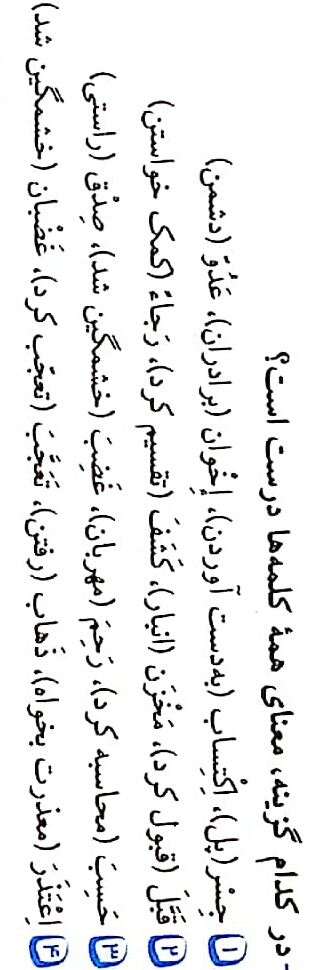 - در کدام گزینه، معنای همهٔ کلمه‌ها درست است؟
۱ جِسْر(پل)، اِکْتِساب (به‌دست آوردن)، إِخْوان (برادران)، عَدُوّ (دشمن)
۲ قَبَّلَ (قبول کرد)، مَخْزَن (انبار)، کَشَفَ (تقسیم کرد)، رَجاءً (کمک خواستن)
۳ حَسِبَ (محاسبه کرد)، رَحِمَ (مهربان)، غَضِبَ (خشمگین شد)، صِدْق (راستی)
۴ اِعْتَذَرَ (معذرت بخواه)، ذَهاب (رفتن)، تَعَجَّبَ (تعجّب کرد)، غَضْبان (خشمگین شد)